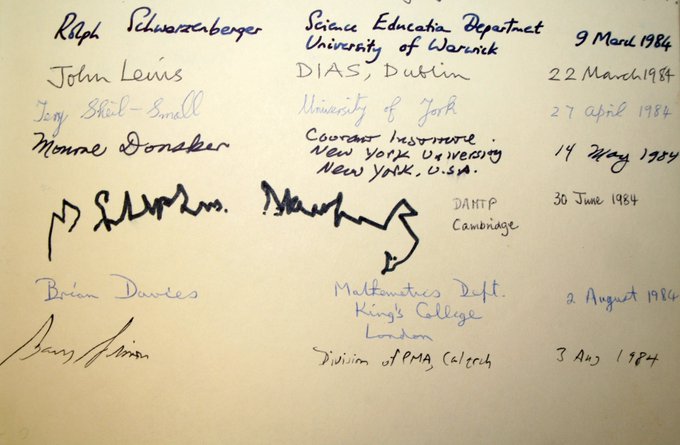 Rolph Schwarzenberger Science Education Department 9 March 1984
University of Warwick
John Lewis DIAS, Dublin 22 March 1984
Terry Sheil-Small University of York 27 April 1984
Monroe Donsker Courant Institute. 14 May 1984
New York University
New York, U.S.A.
Stephen Hawking DAMTP 30 June 1984
Cambridge
Brian Davies Mathematics Dept. 2 August 1984
King's College
London
Barry Simon Division of PMA, Caltech 3 Aug 1984